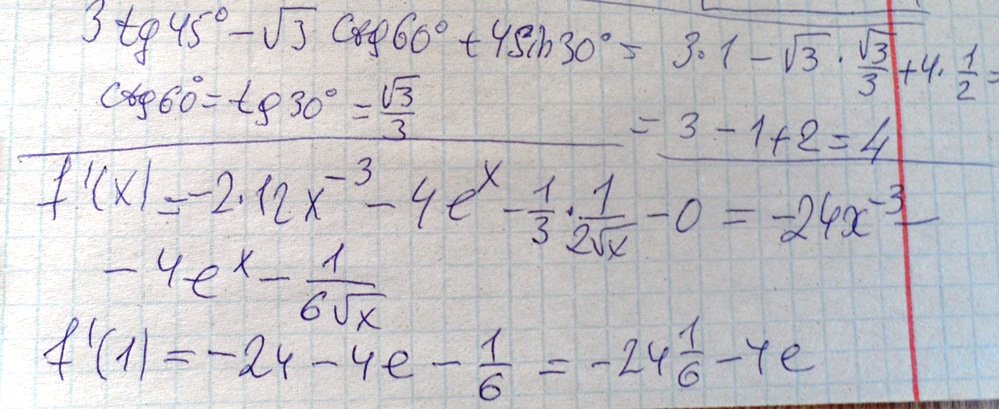 3 tg 45° - √3 ctg 60° + 4 sin 30° = 3·1 - √3 · √3/3 + 4· 1/2 =
ctg 60° = tg 30° = √3/3
= 3 - 1 + 2 = 4
f'(x) = -2·12x⁻³ - 4eˣ - 1/3 · 1/(2√x) - 0 = -24x⁻³ -
- 4eˣ - 1/(6√x)
f'(1) = -24 - 4e - 1/6 = -24 1/6 - 4e